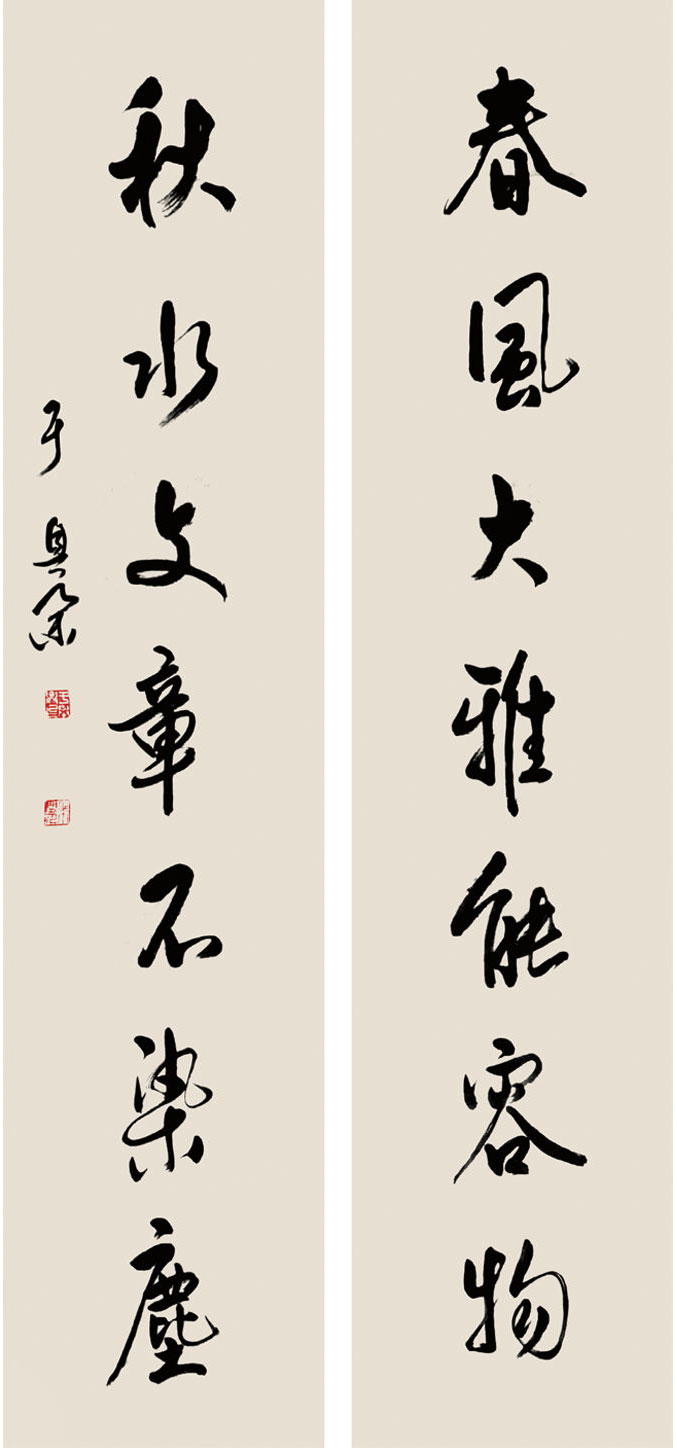 春風大雅能容物
秋水文章不染塵
于